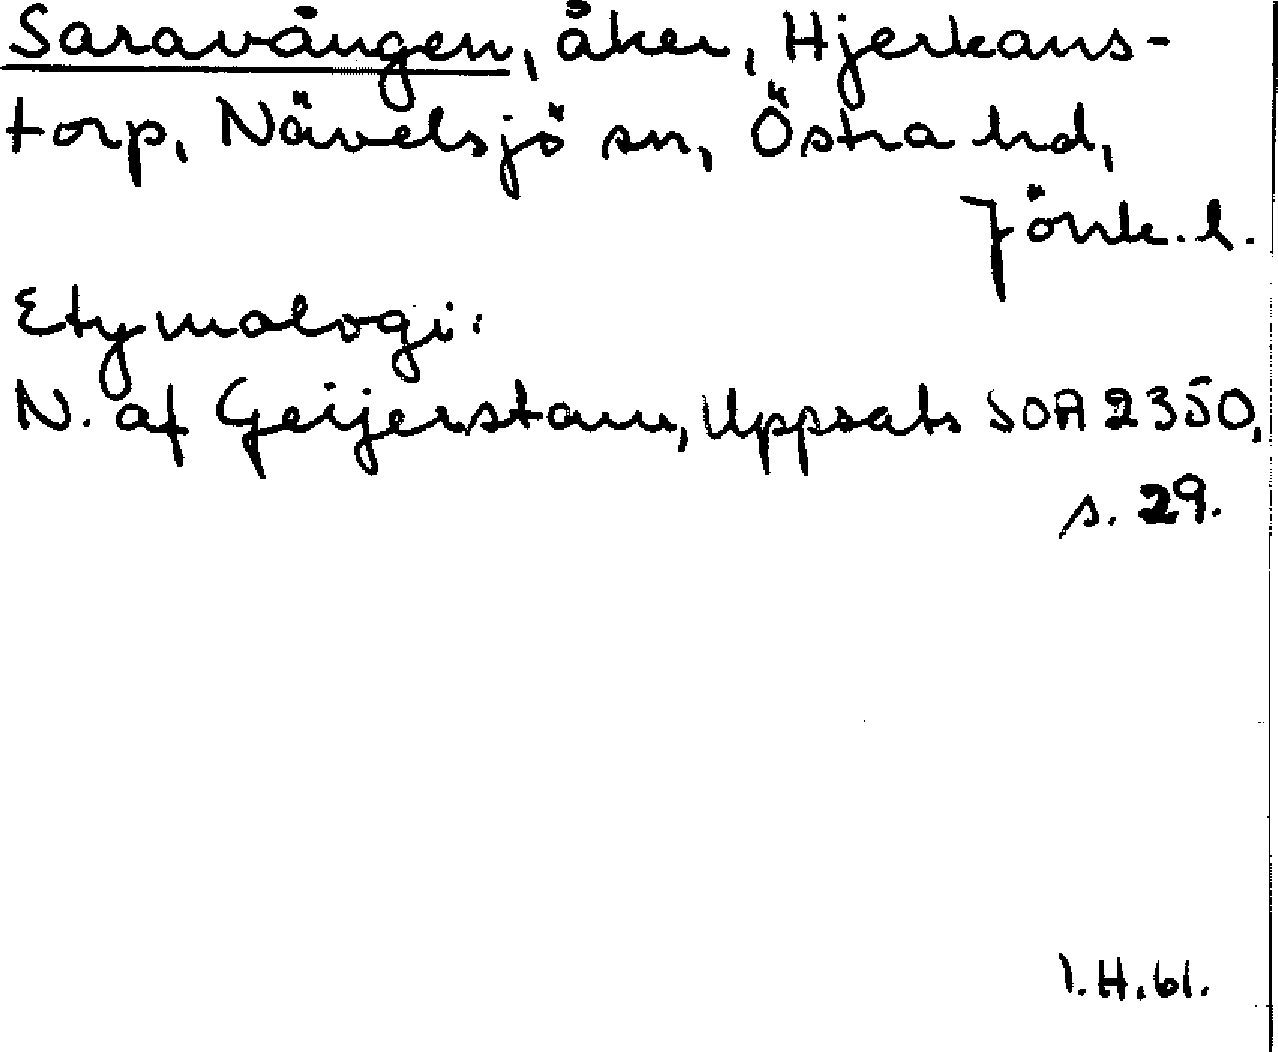 Saravången, åker, Hjerkans-
torp, Nävelsjö sn, Östra hd,
Jönk. l.
Etymologi:
N. af Geijerstam, Uppsats SOA 2350,
s. 29.
I.H.61.